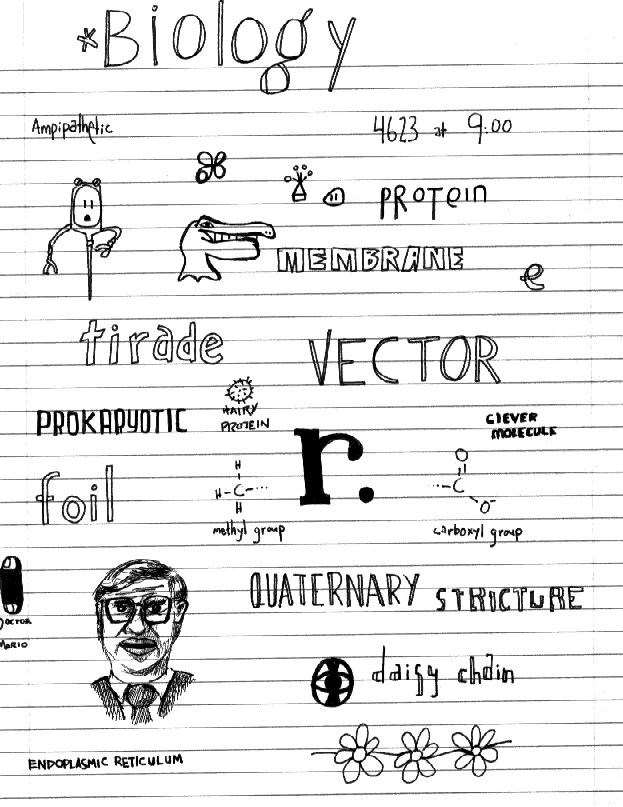 *Biology
Ampipathetic
4623 at 9:00
PROTEIN
MEMBRANE
e
tirade
VECTOR
HAIRY
PROTEIN
PROKARYOTIC
CLEVER
MOLECULE
r.
foil
H
H-C-...
H
methyl group
O
...-C
O-
carboxyl group
DOCTOR
MARIO
QUATERNARY STRICTURE
daisy chain
ENDOPLASMIC RETICULUM